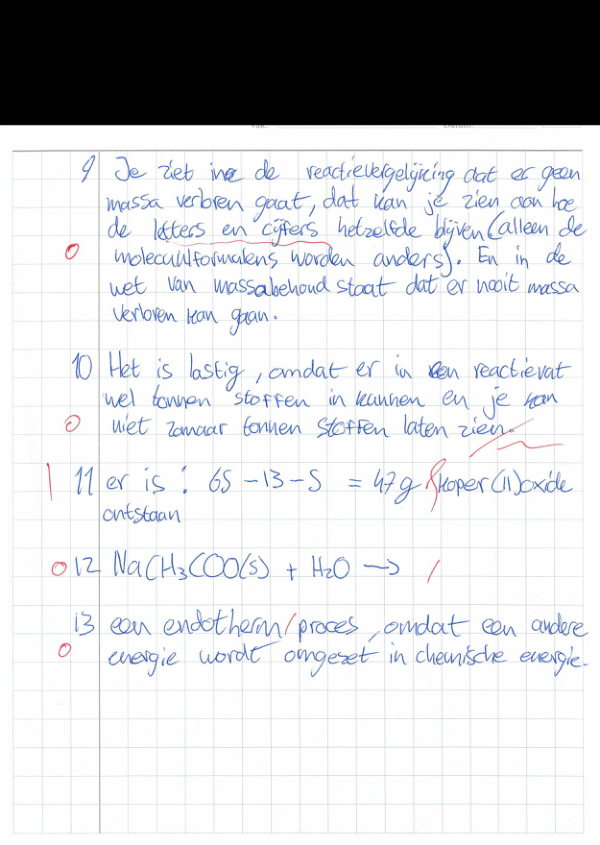 9 Je ziet in de reactievergelijking dat er geen
massa verloren gaat, dat kan je zien aan hoe
de letters en cijfers hetzelfde blijven (alleen de
0 molecuulformulens worden anders). En in de
wet van massabehoud staat dat er nooit massa
verloren kan gaan.
10 Het is lastig, omdat er in een reactievat
wel tonnen stoffen in kunnen en je kan
0 niet zomaar tonnen stoffen laten zien.
11 er is : 65 - 13 - 5 = 47 g koper (II)oxide
ontstaan
0 12 NaCH3COO(s) + H2O →
13 een endotherm proces, omdat een andere
0 energie wordt omgezet in chemische energie.